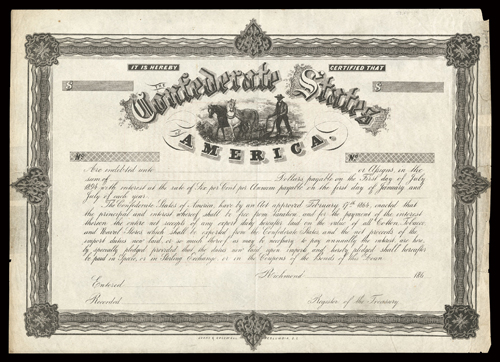 IT IS HEREBY CERTIFIED THAT
$ $
THE Confederate States
OF
AMERICA,
No No
Are indebted unto or Assigns in the
sum of Dollars, payable on the First day of July
1894 with interest at the rate of Six per Cent per Annum payable on the first day of January and
July of each year.
The Confederate States of America, have by an Act approved February 17th 1864, enacted that
the principal and interest whereof shall be free from taxation and for the payment of the interest
thereon the entire net receipts of any export duty hereafter laid on the value of all Cotton, Tobacco
and Naval Stores which shall be exported from the Confederate States and the net proceeds of the
import duties now laid or so much thereof as may be necessary to pay annually the interest are here
by specially pledged provided that the duties now laid upon imports and hereby pledged shall hereafter
be paid in Specie, or in Sterling Exchange or in the Coupons of the Bonds of this Loan.
Richmond 186
Entered
Recorded Register of the Treasury
COLUMBIA, S.C.